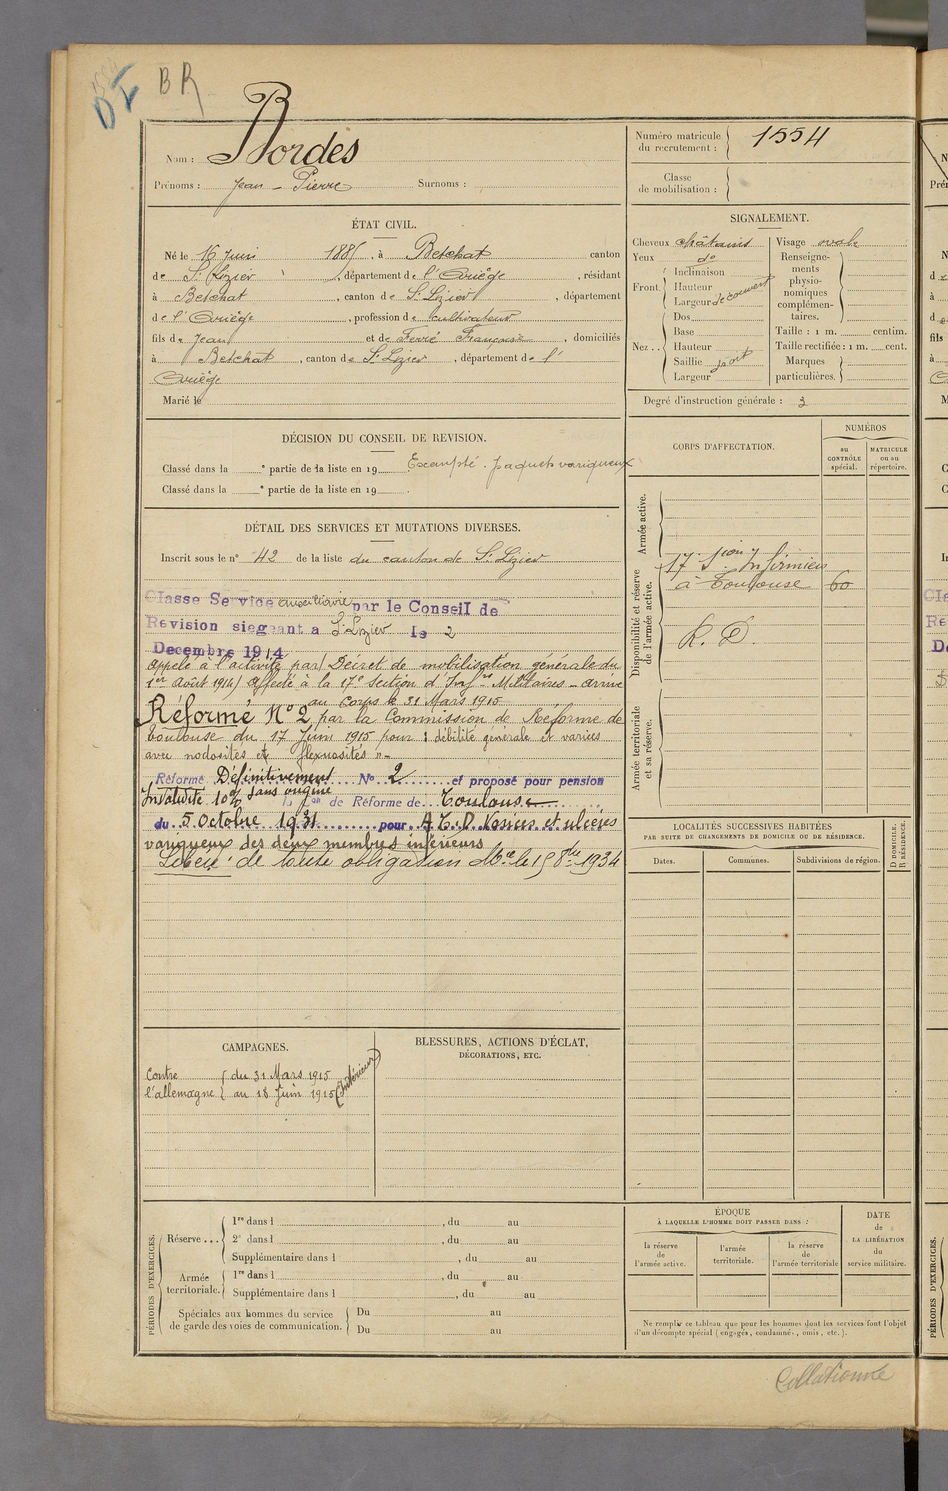 BR
Nom : Bordes
Prénoms : Jean - Pierre Surnoms :
Numéro matricule du recrutement : 1554
Classe de mobilisation :
ÉTAT CIVIL.
Né le 16 Juin 1885, à Betchat canton
de St Lizier, département de l'Ariège, résidant
à Betchat, canton de St Lizier, département
de l'Ariège, profession de cultivateur
fils de Jean et de Ferré Françoise, domiciliés
à Betchat, canton de St Lizier, département de l'
Ariège
Marié le
SIGNALEMENT.
Cheveux châtains
Yeux do
Front. Inclinaison
Hauteur
Largeur découvert
Nez .. Dos
Base
Hauteur
Saillie fort
Largeur
Visage ovale
Renseigne-
ments
physio-
nomiques
complémen-
taires.
Taille : 1 m. centim.
Taille rectifiée : 1 m. cent.
Marques
particulières.
Degré d'instruction générale : 3
DÉCISION DU CONSEIL DE REVISION.
Classé dans la e partie de la liste en 19 Exempté. paquets variqueux
Classé dans la e partie de la liste en 19 .
CORPS D'AFFECTATION.
NUMÉROS
au
CONTRÔLE
spécial.
MATRICULE
ou au
répertoire.
Armée active.
Disponibilité et réserve
de l'armée active.
17e Sion Infirmiers
à Toulouse 60
R. D.
Armée territoriale
et sa réserve.
DÉTAIL DES SERVICES ET MUTATIONS DIVERSES.
Inscrit sous le n° 42 de la liste du canton de St Lizier
Classe Service auxiliaire par le Conseil de
Revision siegeant a St Lizier le 2
Decembre 1914
Appelé à l'activité par Décret de mobilisation générale du
1er Août 1914 Affecté à la 17e Section d'Infres Militaires - arrivé
au Corps le 31 Mars 1915
Réformé N°2 par la Commission de Réforme de
Toulouse du 17 Juin 1915 pour : débilité générale et varices
avec nodosités et flexuosités
Réformé Définitivement N° 2 et proposé pour pension
Invalidité 10% sans origine Con de Réforme de Toulouse
du 5 Octobre 1931 pour A.C.D. Varices et ulcères
variqueux des deux membres inférieurs
Libéré de toute obligation Mre le 15 8bre 1934
LOCALITÉS SUCCESSIVES HABITÉES
PAR SUITE DE CHANGEMENTS DE DOMICILE OU DE RÉSIDENCE.
Dates.
Communes.
Subdivisions de région.
D DOMICILE.
R RÉSIDENCE.
CAMPAGNES.
Contre du 31 Mars 1915
l'allemagne au 18 Juin 1915 (Intérieur)
BLESSURES, ACTIONS D'ÉCLAT,
DÉCORATIONS, ETC.
PÉRIODES D'EXERCICES.
Réserve ... 1re dans l , du au
2e dans l , du au
Supplémentaire dans l , du au
Armée
territoriale. 1re dans l , du au
Supplémentaire dans l , du au
Spéciales aux hommes du service
de garde des voies de communication. Du au
Du au
ÉPOQUE
À LAQUELLE L'HOMME DOIT PASSER DANS :
la réserve
de
l'armée active.
l'armée
territoriale.
la réserve
de
l'armée territoriale
DATE
de
LA LIBÉRATION
du
service militaire.
Ne remplir ce tableau que pour les hommes dont les services font l'objet
d'un décompte spécial (engagés, condamnés, omis, etc.).
Collationné
PÉRIODES D'EXERCICES.